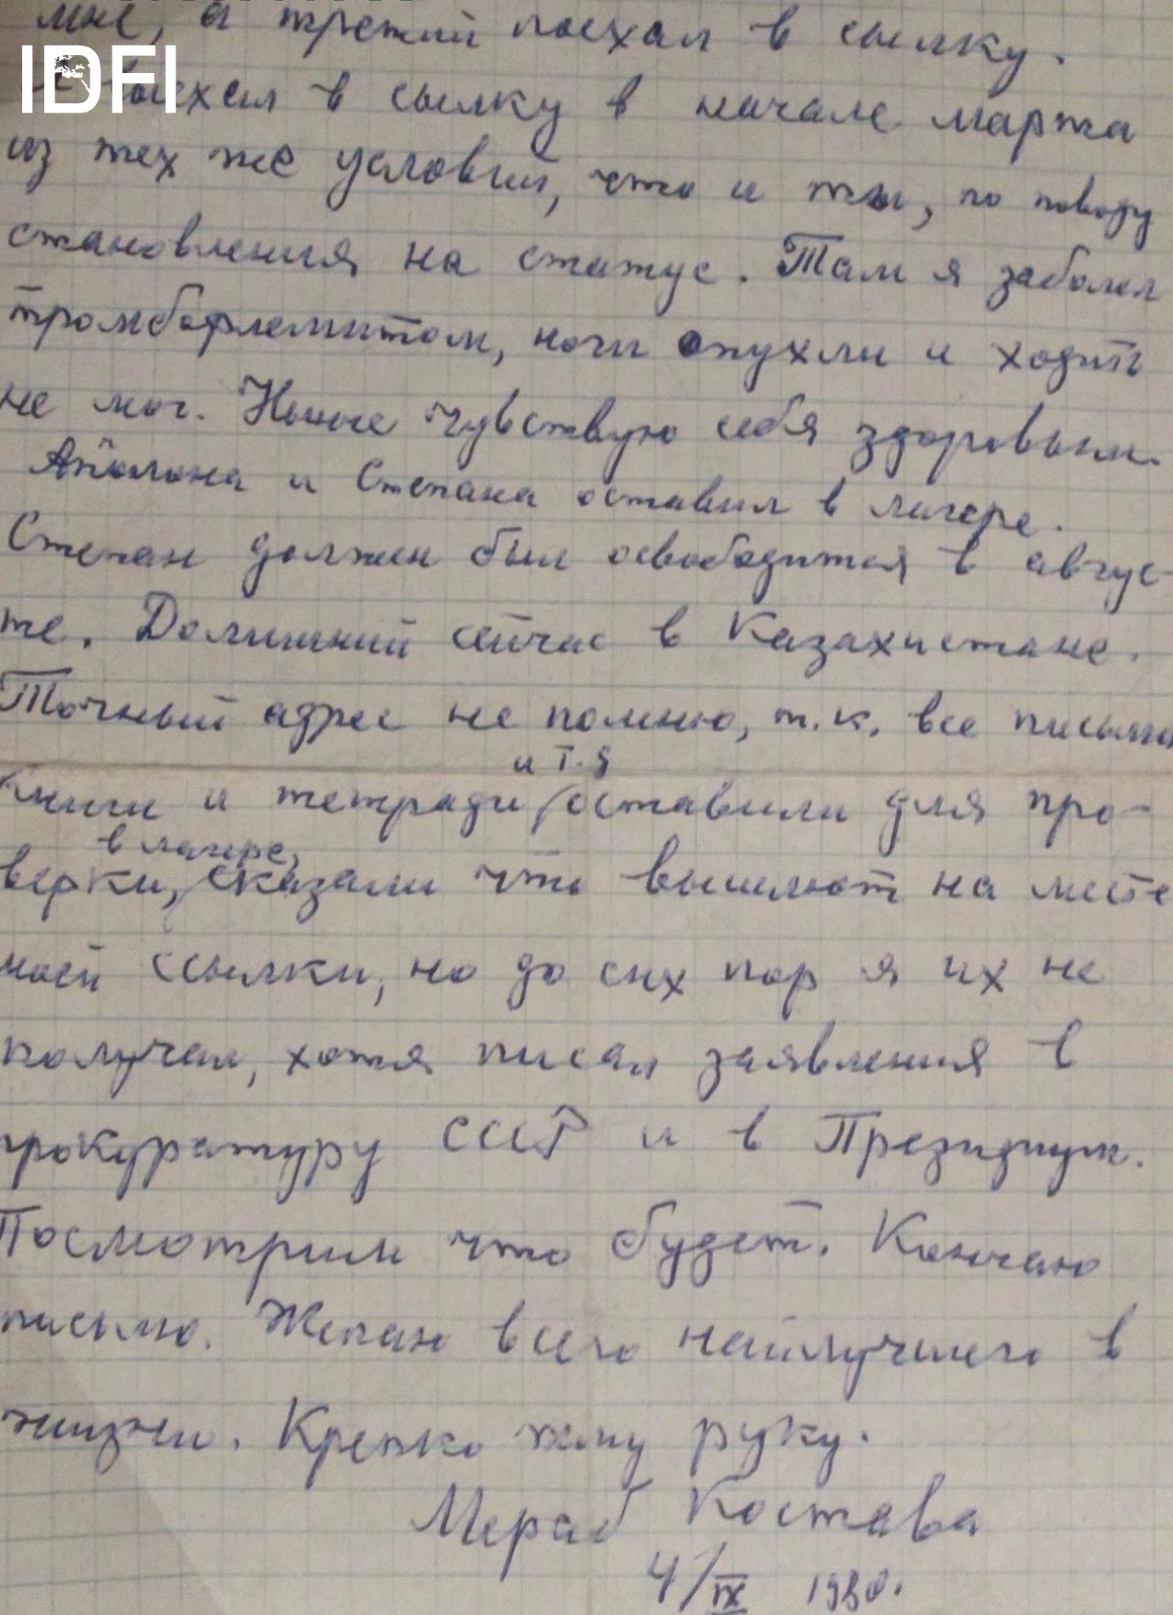 мне, а третий поехал в сылку.
IDFI
Я выехал в сылку в начале марта
из тех же условий, что и ты, по поводу
становления на статус. Там я заболел
тромбофлемитом, ноги опухли и ходить
не мог. Ныне чувствую себя здоровым.
Аполона и Степана оставил в лагере.
Степан должен был освободится в авгус-
те. Долишний сейчас в Казахистане.
Точный адрес не помню, т.к. все письма
и т.д
книги и тетради оставили для про-
в лагере,
верки, сказали что вышлют на месте
моей ссылки, но до сих пор я их не
получал, хотя писал заявления в
прокуратуру СССР и в Президиум.
Посмотрим что будет. Кончаю
письмо. Желаю всего наилучшего в
жизни. Крепко жму руку.
Мераб Костава
4/IX 1980.